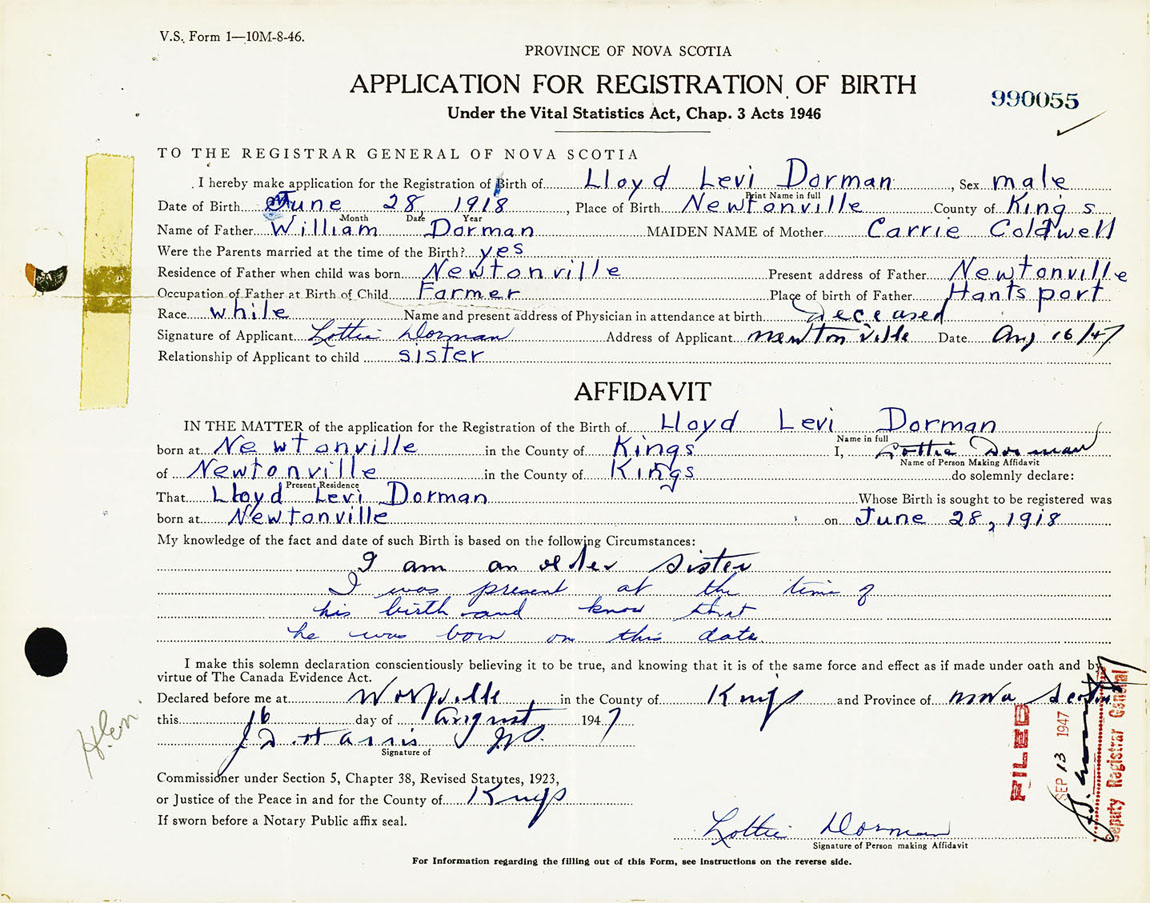 V.S. Form 1—10M-8-46.
PROVINCE OF NOVA SCOTIA
APPLICATION FOR REGISTRATION OF BIRTH
990055
Under the Vital Statistics Act, Chap. 3 Acts 1946
TO THE REGISTRAR GENERAL OF NOVA SCOTIA
I hereby make application for the Registration of Birth of Lloyd Levi Dorman, Sex male
Print Name in full
Date of Birth June 28 1918, Place of Birth Newtonville County of Kings
Month Date Year
Name of Father William Dorman MAIDEN NAME of Mother Carrie Coldwell
Were the Parents married at the time of the Birth? yes
Residence of Father when child was born Newtonville Present address of Father Newtonville
Occupation of Father at Birth of Child Farmer Place of birth of Father Hantsport
Race while Name and present address of Physician in attendance at birth deceased
Signature of Applicant Lottie Dorman Address of Applicant Newtonville Date Aug 16/47
Relationship of Applicant to child sister
AFFIDAVIT
IN THE MATTER of the application for the Registration of the Birth of Lloyd Levi Dorman
Name in full
born at Newtonville in the County of Kings I, Lottie Dorman
Name of Person Making Affidavit
of Newtonville in the County of Kings do solemnly declare:
Present Residence
That Lloyd Levi Dorman Whose Birth is sought to be registered was
born at Newtonville on June 28, 1918
My knowledge of the fact and date of such Birth is based on the following Circumstances:
I am an older sister
I was present at the time of
his birth and know that
he was born on this date
I make this solemn declaration conscientiously believing it to be true, and knowing that it is of the same force and effect as if made under oath and by
virtue of The Canada Evidence Act.
Declared before me at Wolfville in the County of Kings and Province of Nova Scotia
this 16 day of August 1947
J. D. Harris J.P.
Signature of
Commissioner under Section 5, Chapter 38, Revised Statutes, 1923,
or Justice of the Peace in and for the County of Kings
If sworn before a Notary Public affix seal.
Lottie Dorman
Signature of Person making Affidavit
For Information regarding the filling out of this Form, see instructions on the reverse side.
FILED
SEP 13 1947
Deputy Registrar General